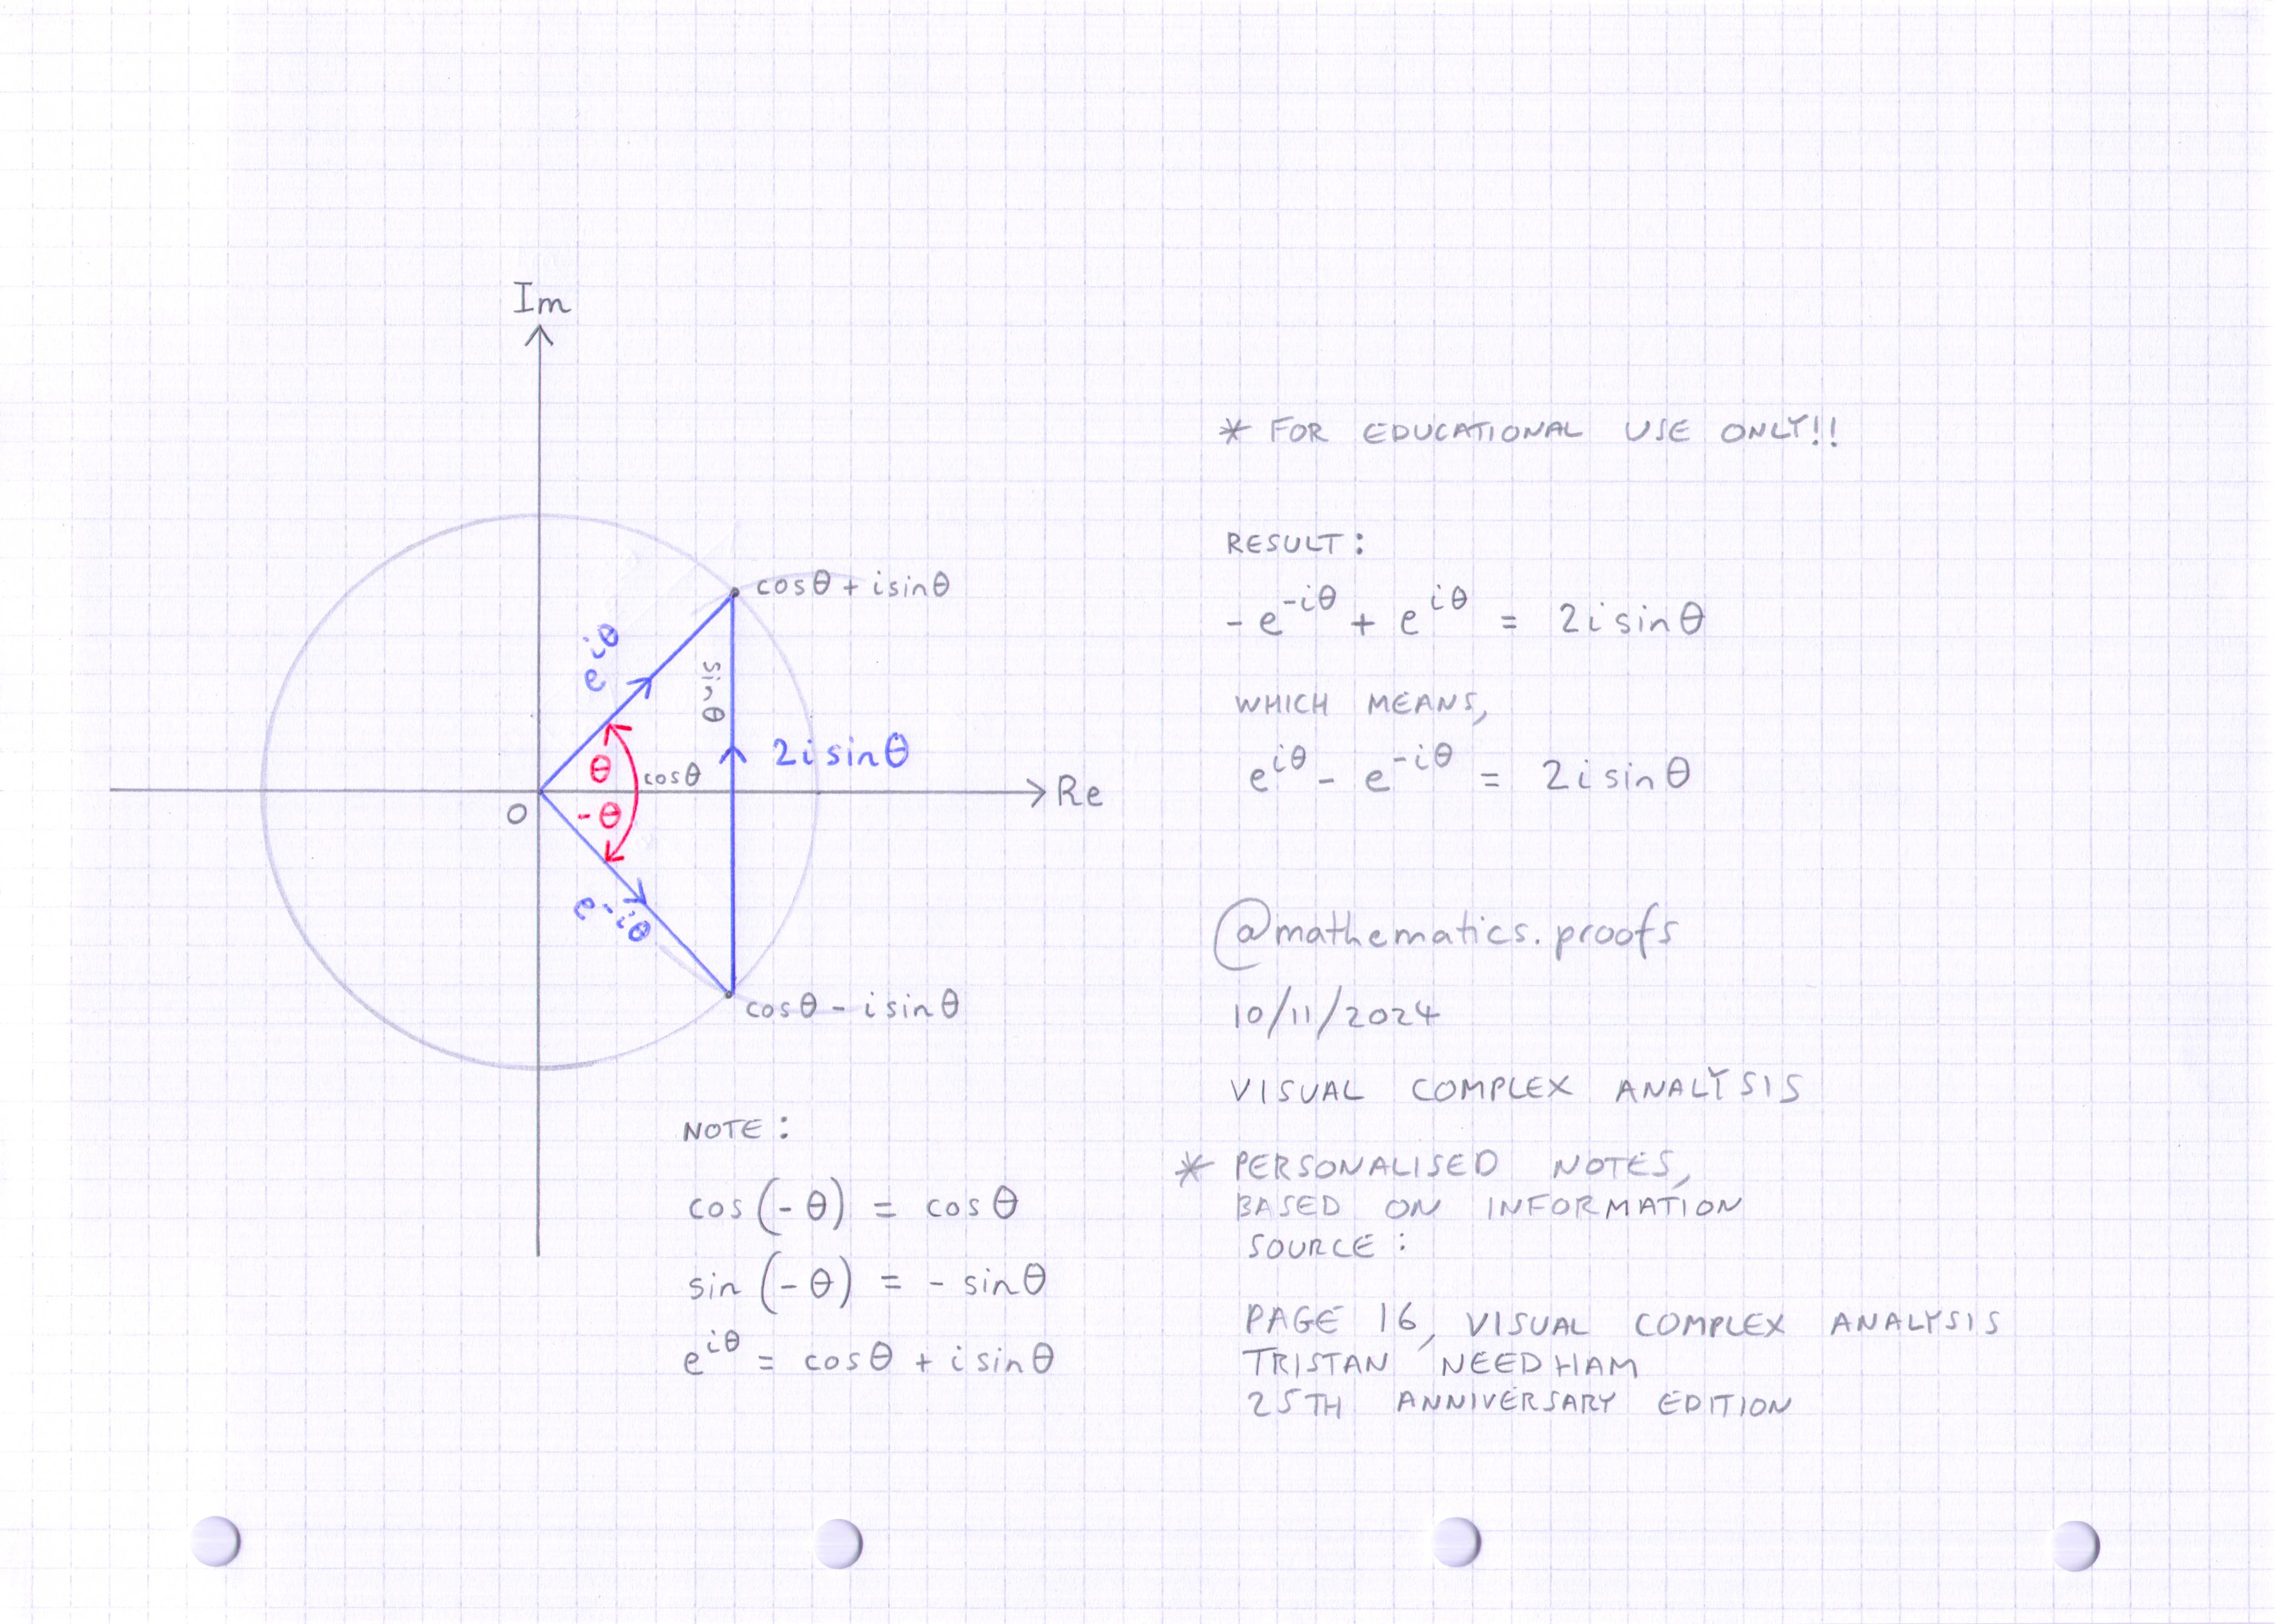 Im
cosθ + isinθ
e^iθ
sinθ
2isinθ
θ
cosθ
Re
O
-θ
e^-iθ
cosθ - isinθ
NOTE:
cos(-θ) = cosθ
sin(-θ) = - sinθ
e^iθ = cosθ + isinθ
* FOR EDUCATIONAL USE ONLY!!
RESULT:
- e^-iθ + e^iθ = 2isinθ
WHICH MEANS,
e^iθ - e^-iθ = 2isinθ
@mathematics.proofs
10/11/2024
VISUAL COMPLEX ANALYSIS
* PERSONALISED NOTES,
BASED ON INFORMATION
SOURCE:
PAGE 16, VISUAL COMPLEX ANALYSIS
TRISTAN NEEDHAM
25TH ANNIVERSARY EDITION